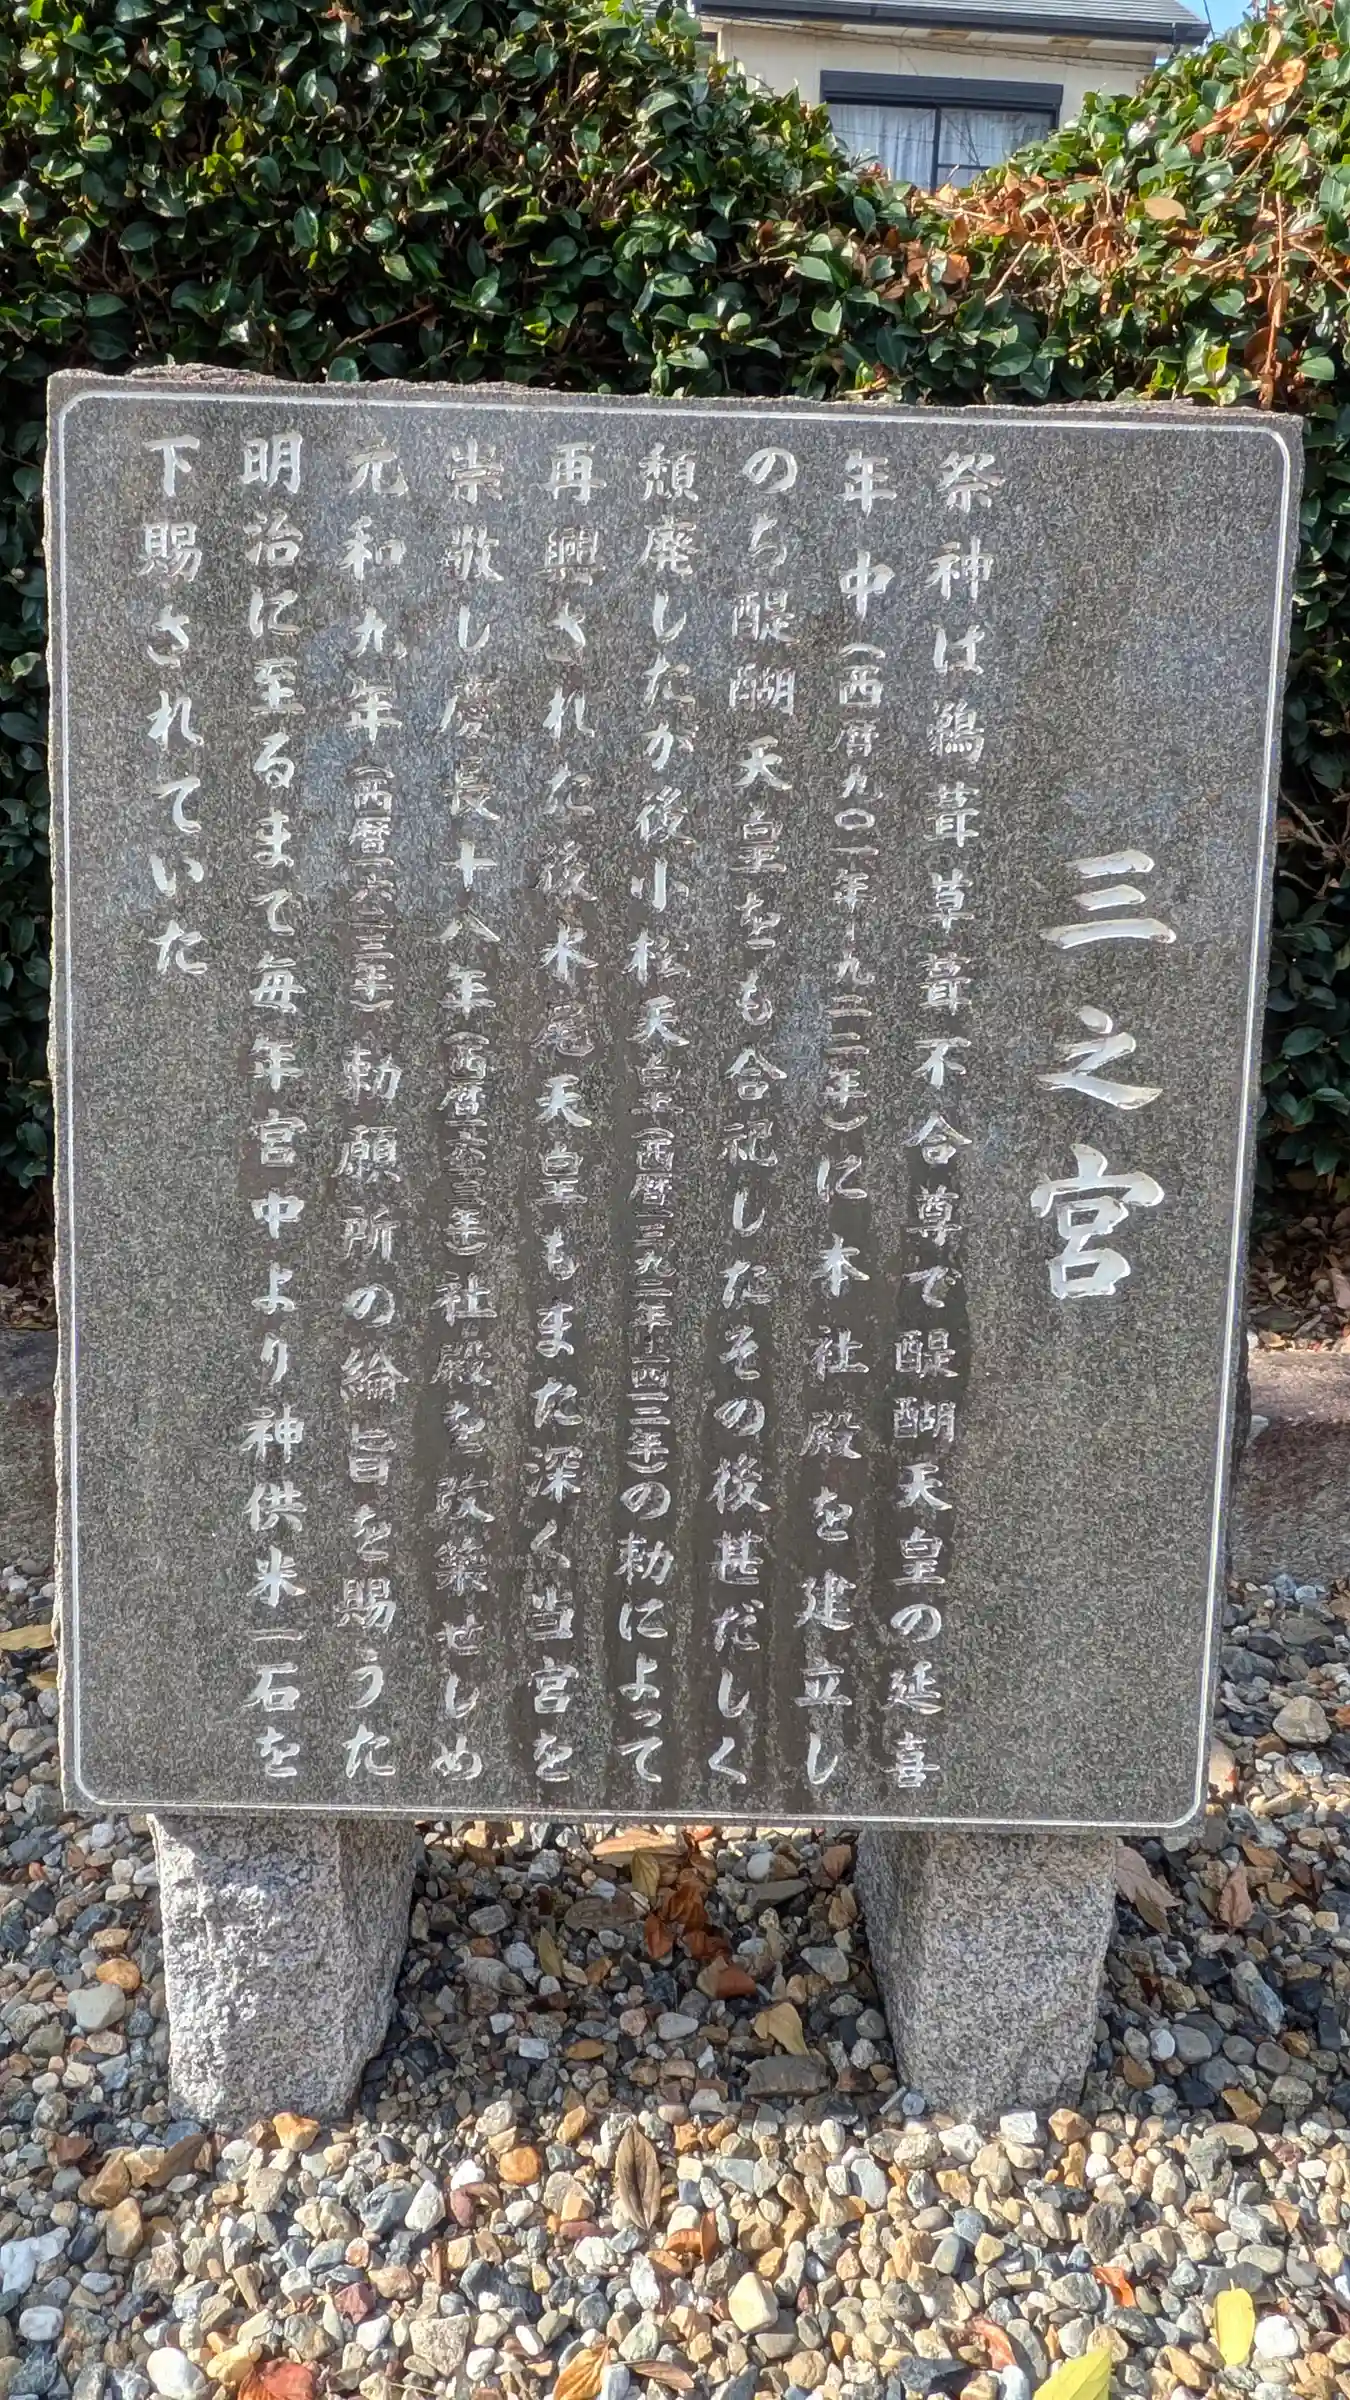 三之宮
祭神は鵜葺草葺不合尊で醍醐天皇の延喜
年中(西暦九〇一年-九二二年)に本社殿を建立し
のち醍醐天皇をも合祀したその後甚だしく
頽廃したが後小松天皇(西暦一三九二年-一四一二年)の勅によって
再興された後水尾天皇もまた深く当宮を
崇敬し慶長十八年(西暦一六一三年)社殿を改築せしめ
元和九年(西暦一六二三年)勅願所の綸旨を賜うた
明治に至るまで毎年宮中より神供米一石を
下賜されていた